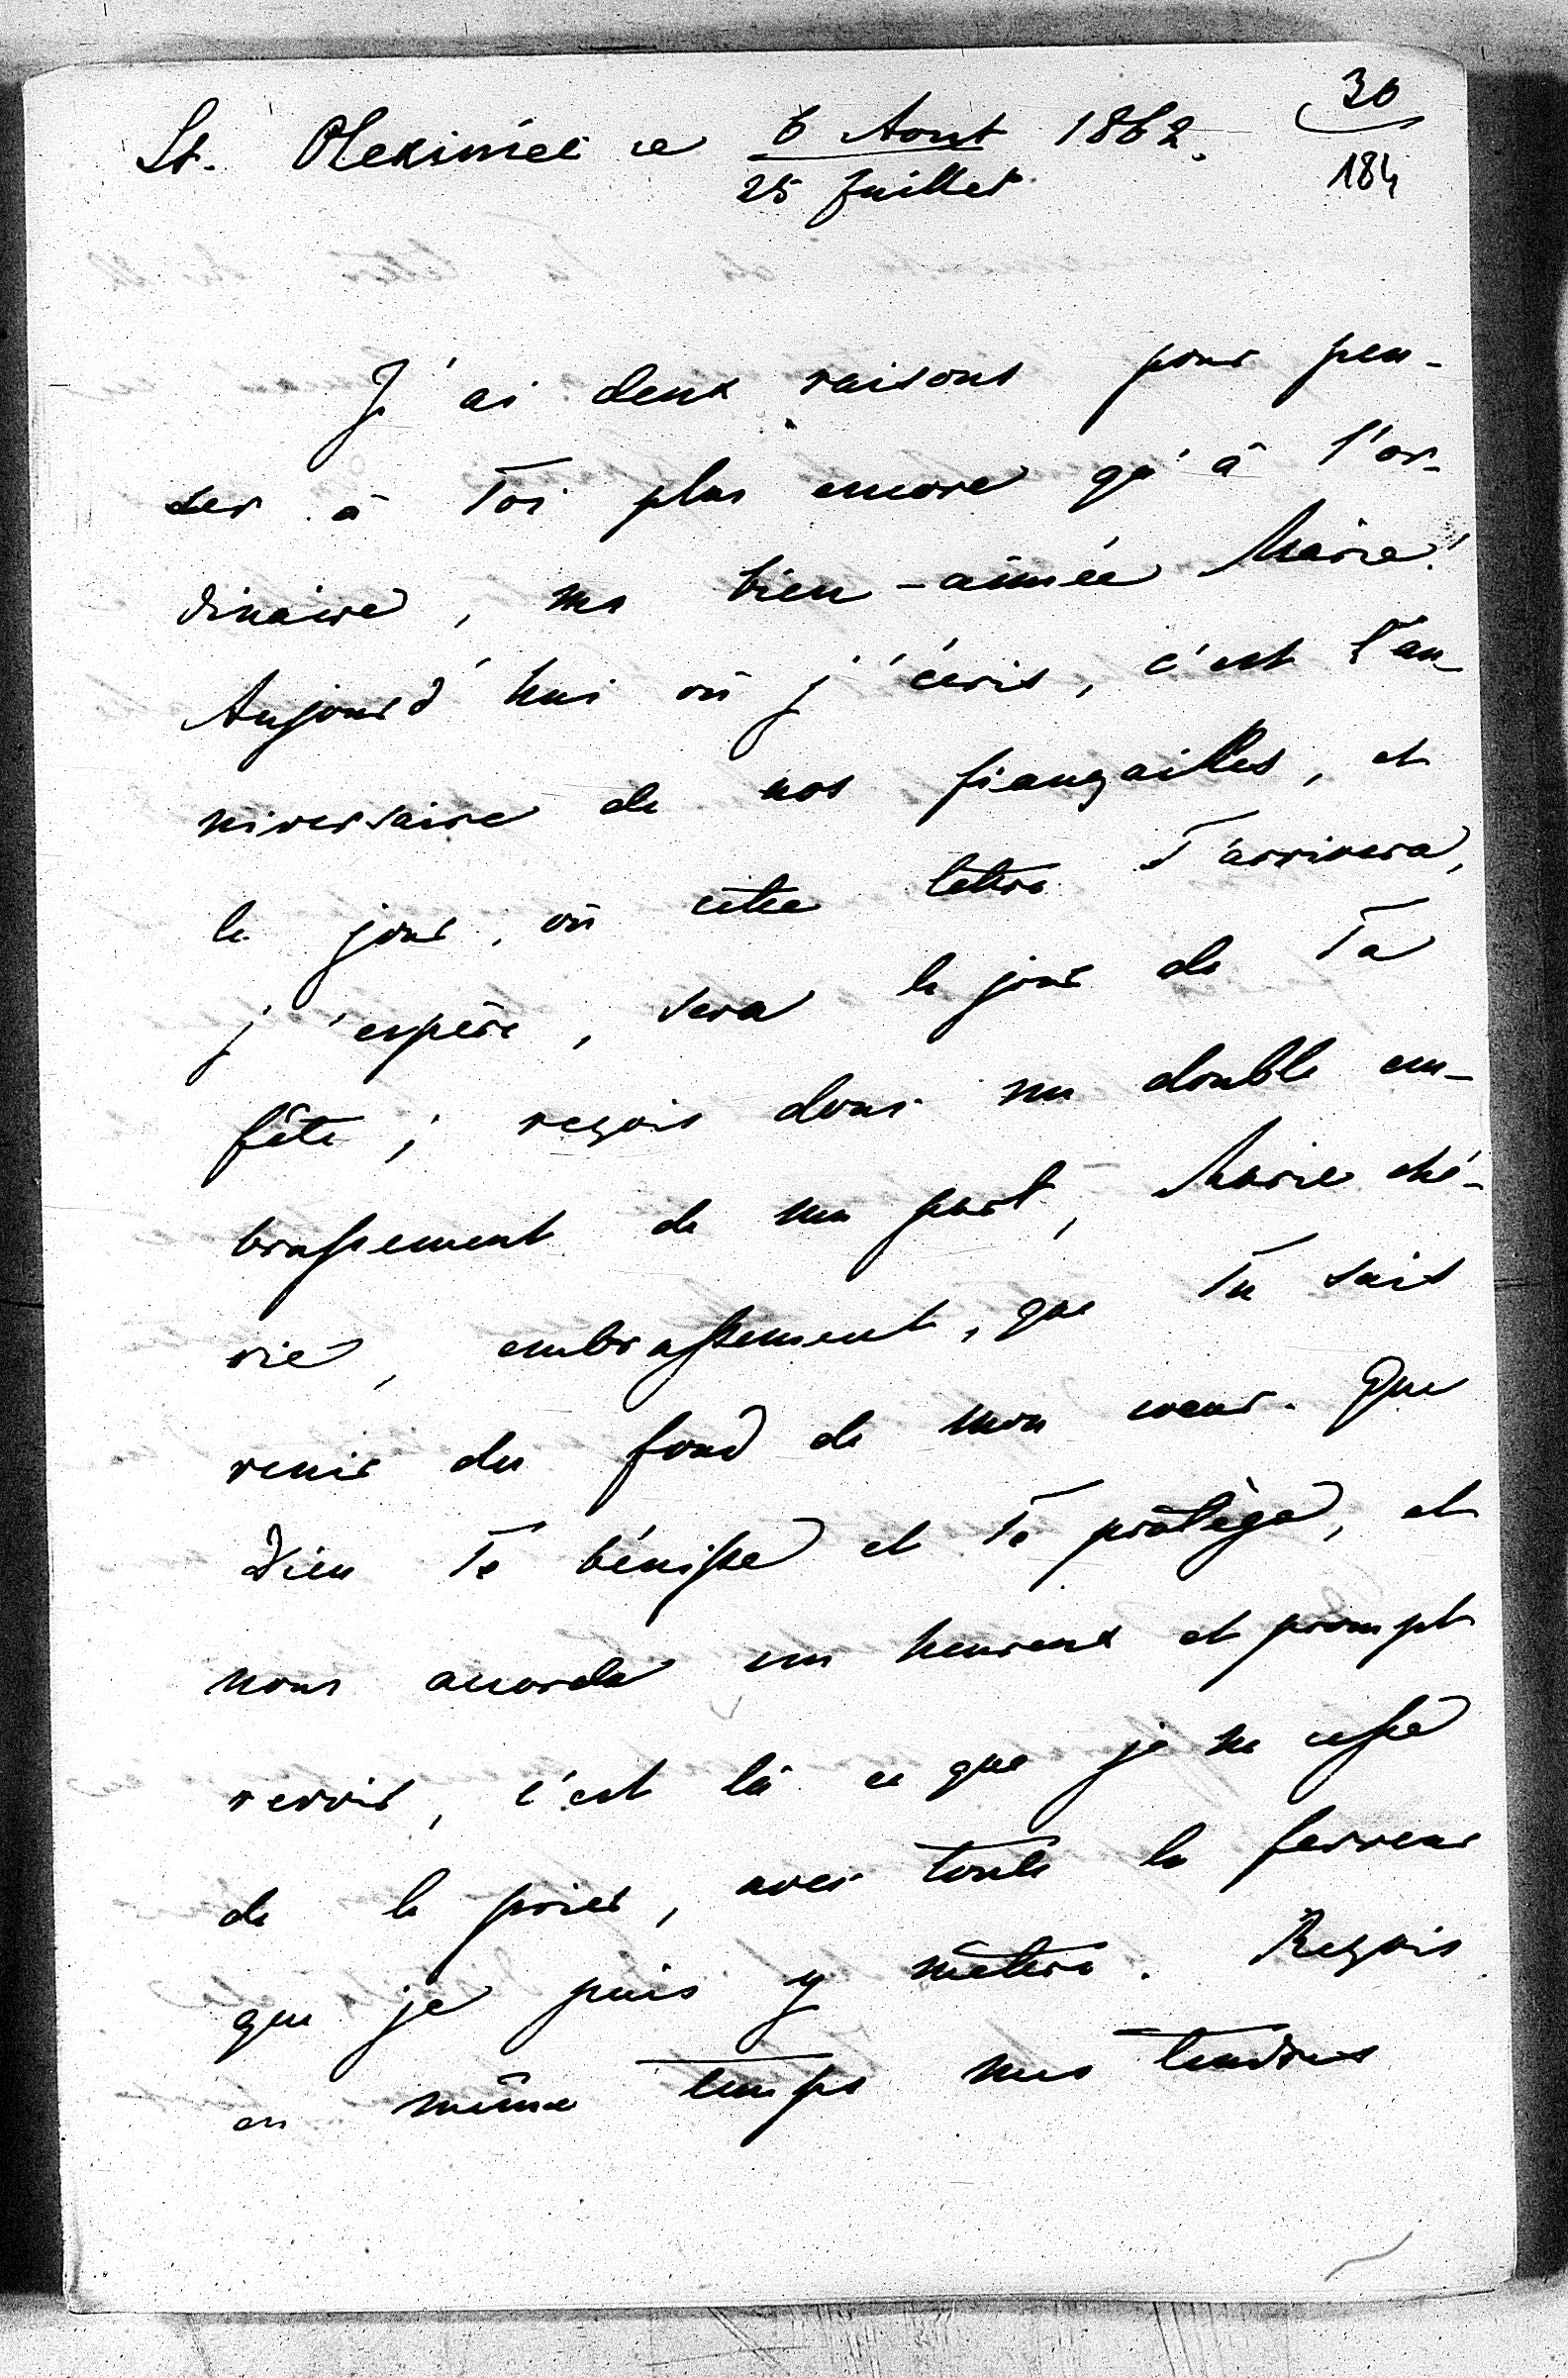 St. Olexinéc ce 6 Aout 1862. 30
25 Juillet 184
J'ai deux raisons pour pen-
ser à Toi plus encore qu'à l'or-
dinaire, ma bien-aimée Marie!
Aujourd'hui où j'écris, c'est l'an-
niversaire de nos fiançailles, et
le jour, où cette lettre T'arrivera,
j'espère, sera le jour de Ta
fête; reçois donc un double em-
brassement de ma part, Marie ché-
rie, embrassement, que Tu sais
venir du fond de mon coeur. Que
Dieu Te bénisse et Te protège, et
nous accorde un heureux et prompt
revoir, c'est là ce que je ne cesse
de le prier, avec toute la ferveur
que je puis y mettre. Reçois
en même temps mes tendres